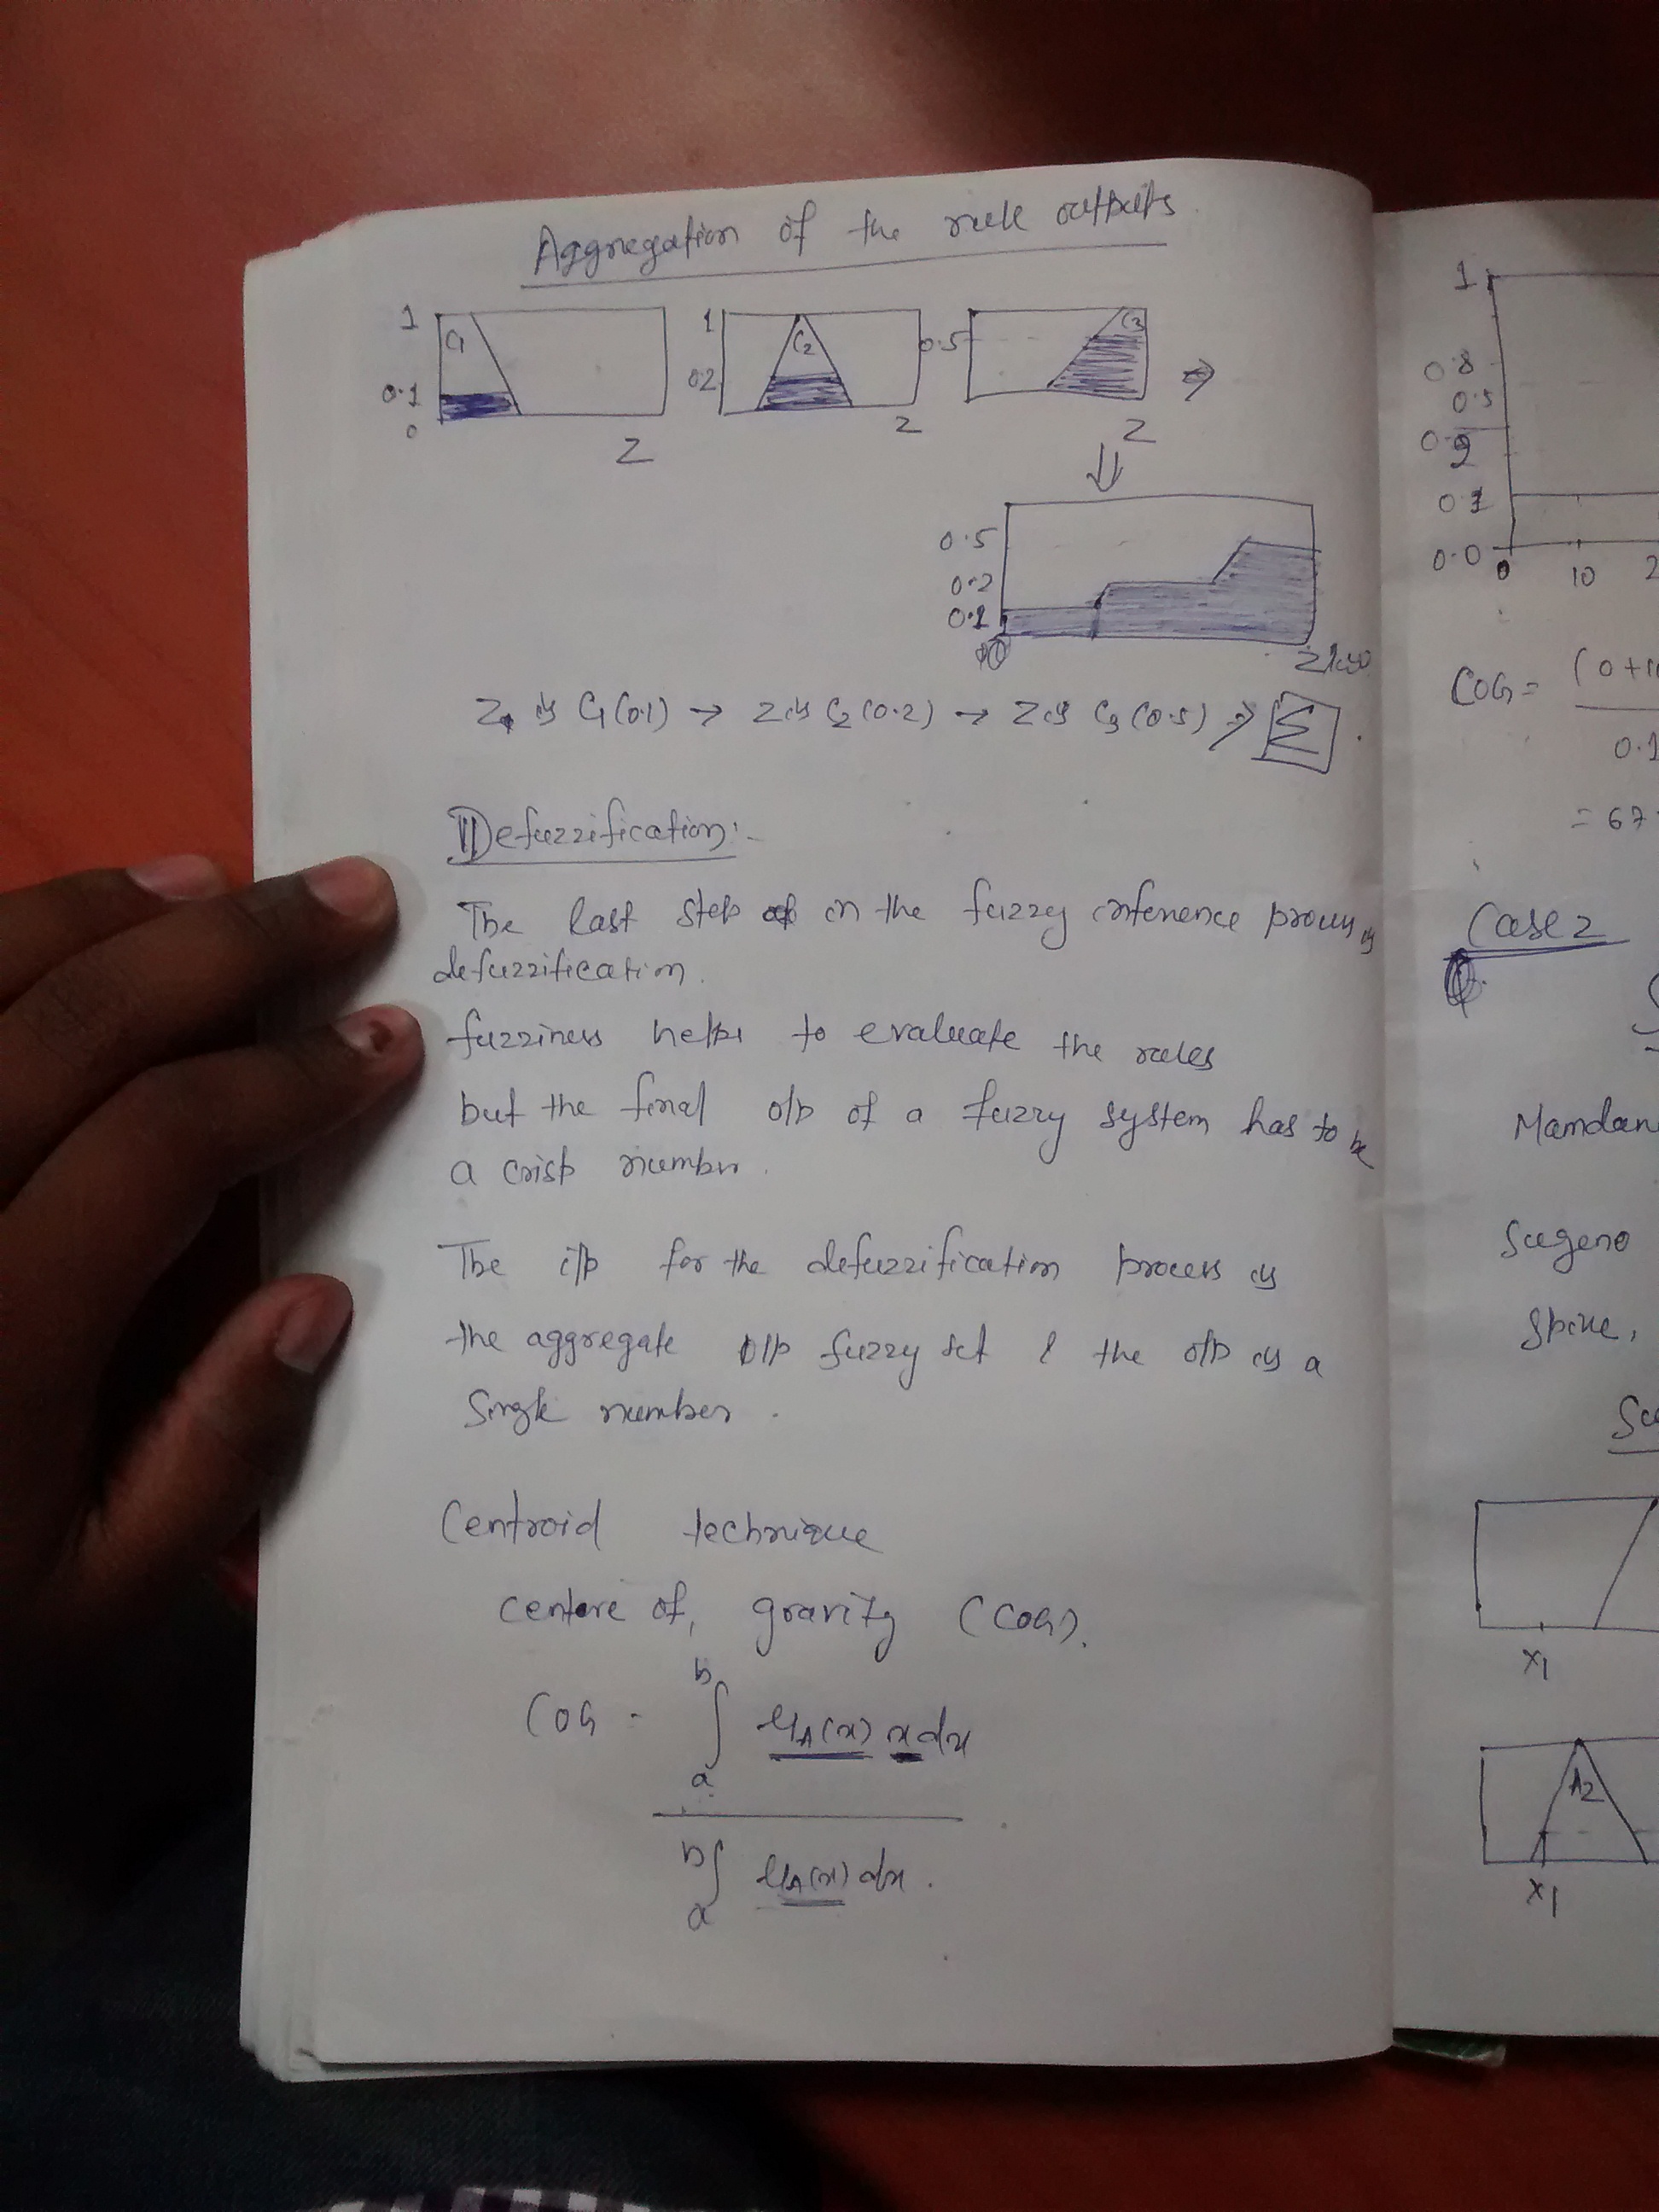 Aggregation of the rule outputs
1 C1 0.1 0 Z
1 C2 0.2 Z
0.5 C3 Z ⇒
⇓
0.5
0.2
0.1
0
Z is C1 (0.1) → Z is C2 (0.2) → Z is C3 (0.5) ⇒ Σ
Defuzzification:-
The last step in the fuzzy inference process is
defuzzification.
fuzziness helps to evaluate the rules
but the final o/p of a fuzzy system has to be
a crisp number.
The i/p for the defuzzification process is
the aggregate o/p fuzzy set & the o/p is a
single number.
Centroid technique
centre of gravity (COG).
COG = ∫ₐᵇ μA(x) x dx
∫ₐᵇ μA(x) dx.
1
0.8
0.5
0.2
0.1
0.0
0 10 2
COG = (0+10
0.1
= 67
Case 2
Mamdan
Sugeno
Spike,
X1
A2
X1